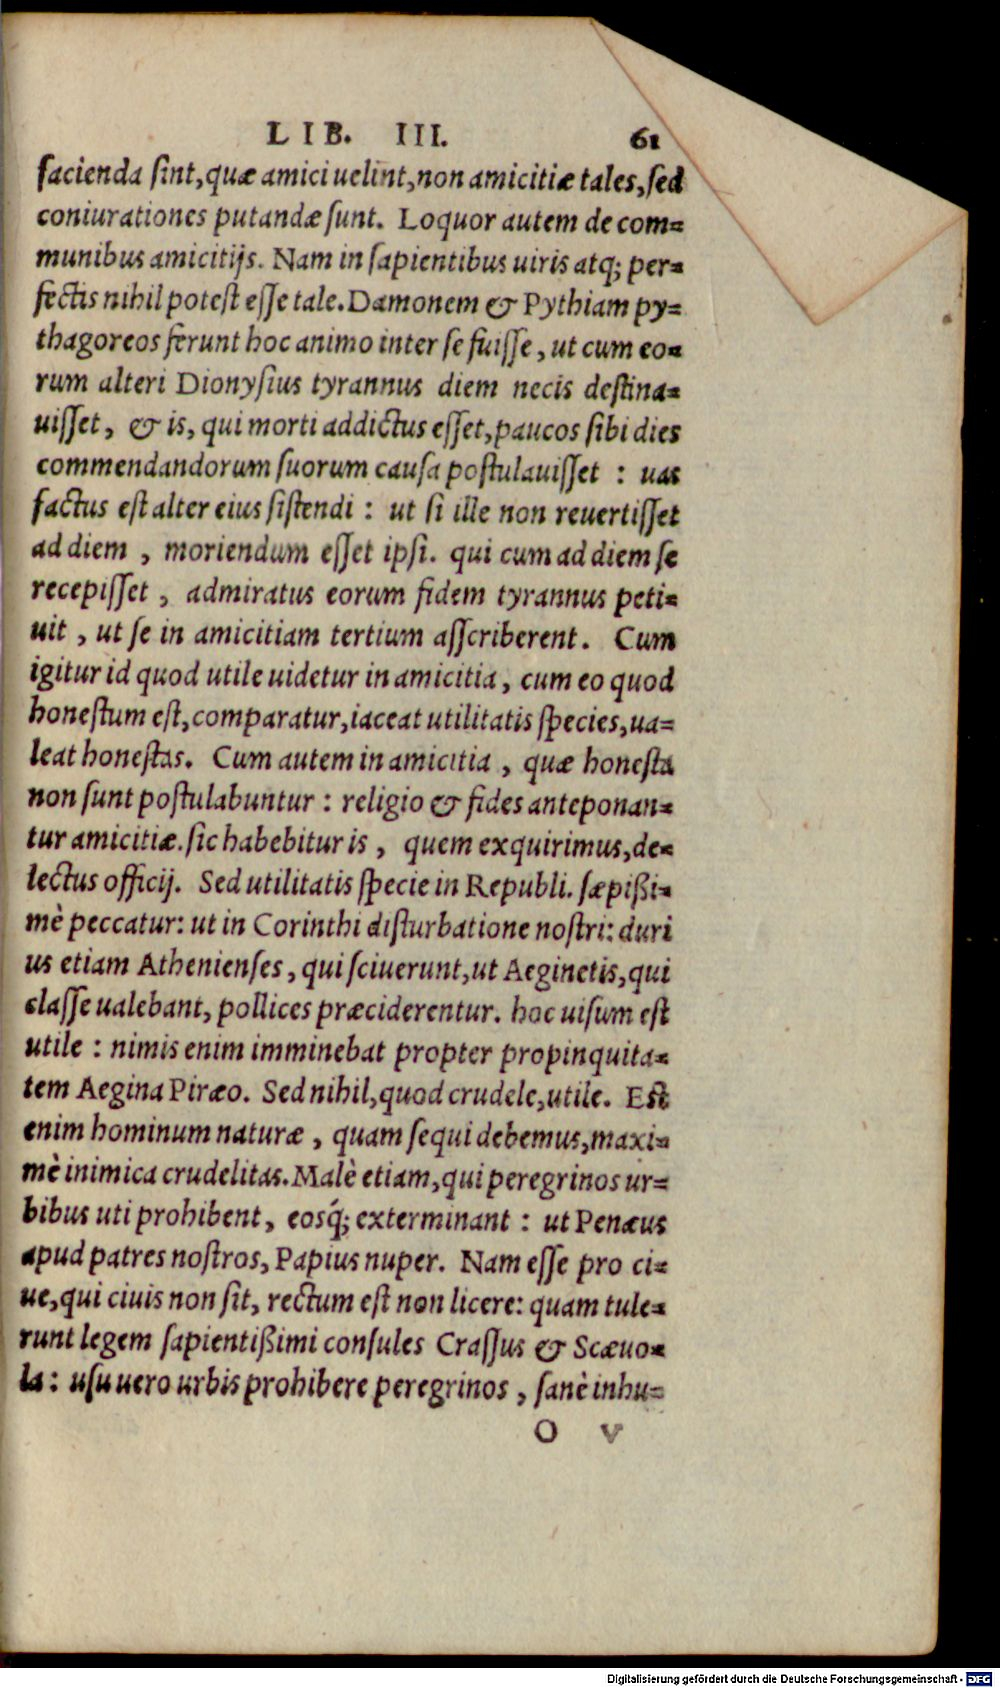 LIB. III. 61
facienda sint,quæ amici uelint,non amicitiæ tales,sed
coniurationes putandæ sunt. Loquor autem de com=
munibus amicitijs. Nam in sapientibus uiris atq; per=
fectis nihil potest esse tale.Damonem & Pythiam py=
thagoreos ferunt hoc animo inter se fuisse, ut cum eo=
rum alteri Dionysius tyrannus diem necis destina=
uisset, & is, qui morti addictus esset,paucos sibi dies
commendandorum suorum causa postulauisset : uas
factus est alter eius sistendi : ut si ille non reuertisset
ad diem , moriendum esset ipsi. qui cum ad diem se
recepisset , admiratus eorum fidem tyrannus peti=
uit , ut se in amicitiam tertium asscriberent. Cum
igitur id quod utile uidetur in amicitia, cum eo quod
honestum est,comparatur,iaceat utilitatis species,ua=
leat honestas. Cum autem in amicitia , quæ honesta
non sunt postulabuntur : religio & fides anteponan=
tur amicitiæ.sic habebitur is , quem exquirimus,de=
lectus officij. Sed utilitatis specie in Republi. sæpißi=
mè peccatur: ut in Corinthi disturbatione nostri: duri
us etiam Athenienses, qui sciuerunt,ut Aeginetis,qui
classe ualebant, pollices præciderentur. hoc uisum est
utile : nimis enim imminebat propter propinquita=
tem Aegina Piræo. Sed nihil,quod crudele,utile. Est
enim hominum naturæ , quam sequi debemus,maxi=
mè inimica crudelitas.Malè etiam,qui peregrinos ur=
bibus uti prohibent, eosq́; exterminant : ut Penæus
apud patres nostros, Papius nuper. Nam esse pro ci=
ue,qui ciuis non sit, rectum est non licere: quam tule=
runt legem sapientißimi consules Crassus & Scæuo=
la : usu uero urbis prohibere peregrinos , sanè inhu=
O v
Digitalisierung gefördert durch die Deutsche Forschungsgemeinschaft - DFG